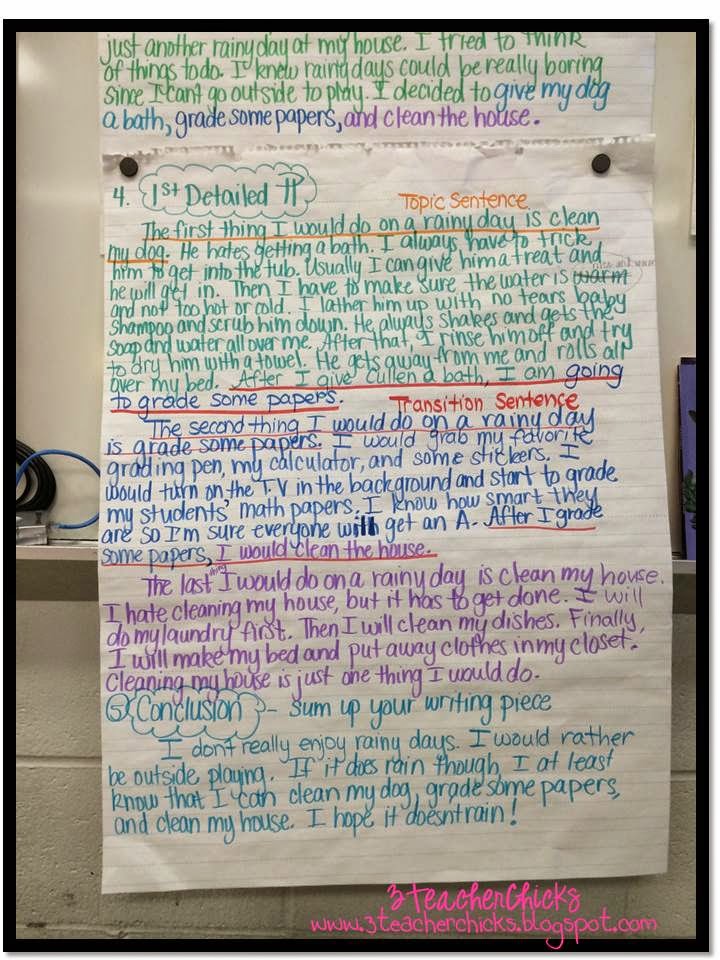 just another rainy day at my house. I tried to think
of things to do. I knew rainy days could be really boring
since I cant go outside to play. I decided to give my dog
a bath, grade some papers, and clean the house.
4. 1st Detailed ¶
Topic Sentence
The first thing I would do on a rainy day is clean
my dog. He hates getting a bath. I always have to trick
him to get into the tub. Usually I can give him a treat and
nice and warm
he will get in. Then I have to make sure the water is warm
and not too hot or cold. I lather him up with no tears baby
shampoo and scrub him down. He always shakes and gets the
soap and water all over me. After that, I rinse him off and try
to dry him with a towel. He gets away from me and rolls all
over my bed. After I give Cullen a bath, I am going
to grade some papers. Transition Sentence
The second thing I would do on a rainy day
is grade some papers. I would grab my favorite
grading pen, my calculator, and some stickers. I
would turn on the T.V in the background and start to grade
my students' math papers. I know how smart they
are so I'm sure everyone will get an A. After I grade
some papers, I would clean the house.
The last thing I would do on a rainy day is clean my house.
I hate cleaning my house, but it has to get done. I will
do my laundry first. Then I will clean my dishes. Finally,
I will make my bed and put away clothes in my closet.
Cleaning my house is just one thing I would do.
5 Conclusion - Sum up your writing piece
I don't really enjoy rainy days. I would rather
be outside, playing. If it does rain though, I at least
know that I can clean my dog, grade some papers,
and clean my house. I hope it doesn't rain!
3 TeacherChicks
www.3teacherchicks.blogspot.com